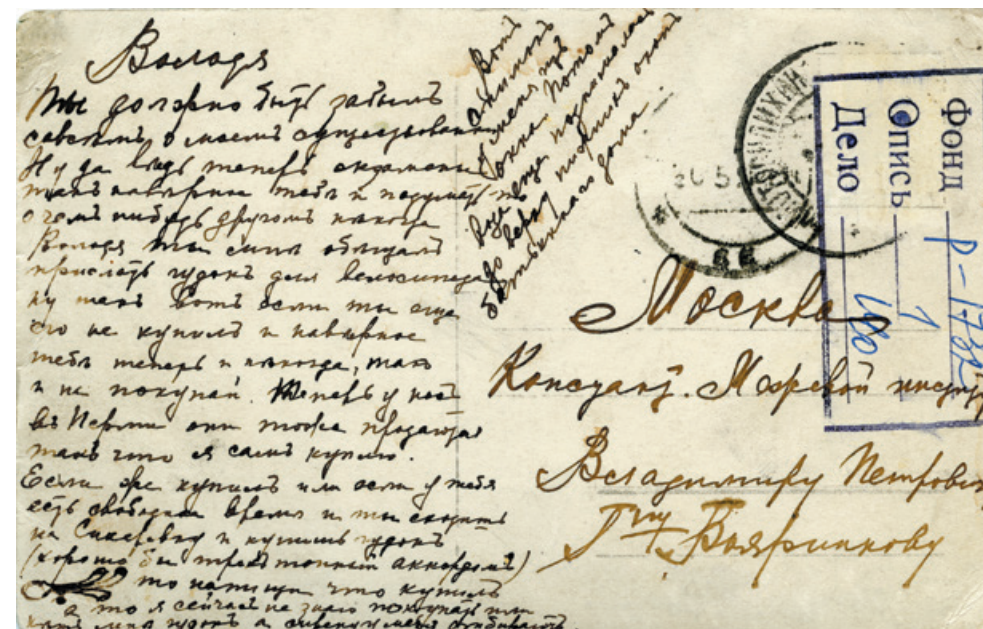 Володя
Ты должно быть забылъ
совсѣмъ о моемъ существовании
Ну да вѣдь теперь экзамены
такъ навѣрное тебѣ и подумать
о чемъ нибудь другомъ некогда
Володя ты мнѣ обѣщалъ
прислать гудокъ для велосипеда
ну такъ вотъ если ты еще
его не купилъ и навѣрное
тебѣ теперь и некогда, такъ
и не покупай. Теперь у насъ
въ Перми они тоже продаются
такъ что я самъ куплю.
Если же купилъ или если у тебя
есть свободное время и ты сходишь
на и купишь гудокъ
(хорошо бы аккордомъ)
то напиши что купилъ
а то я сейчасъ не знаю покупать или
нѣтъ мнѣ гудокъ а у меня
Вотъ
снимокъ
у меня изъ
окна. Потомъ
вода еще поднималась
до верху
дома.
Москва
Межевой
Владимиру Петрович
Г-ну Бояринкову
Фонд Р-1732
Опись 1
Дело